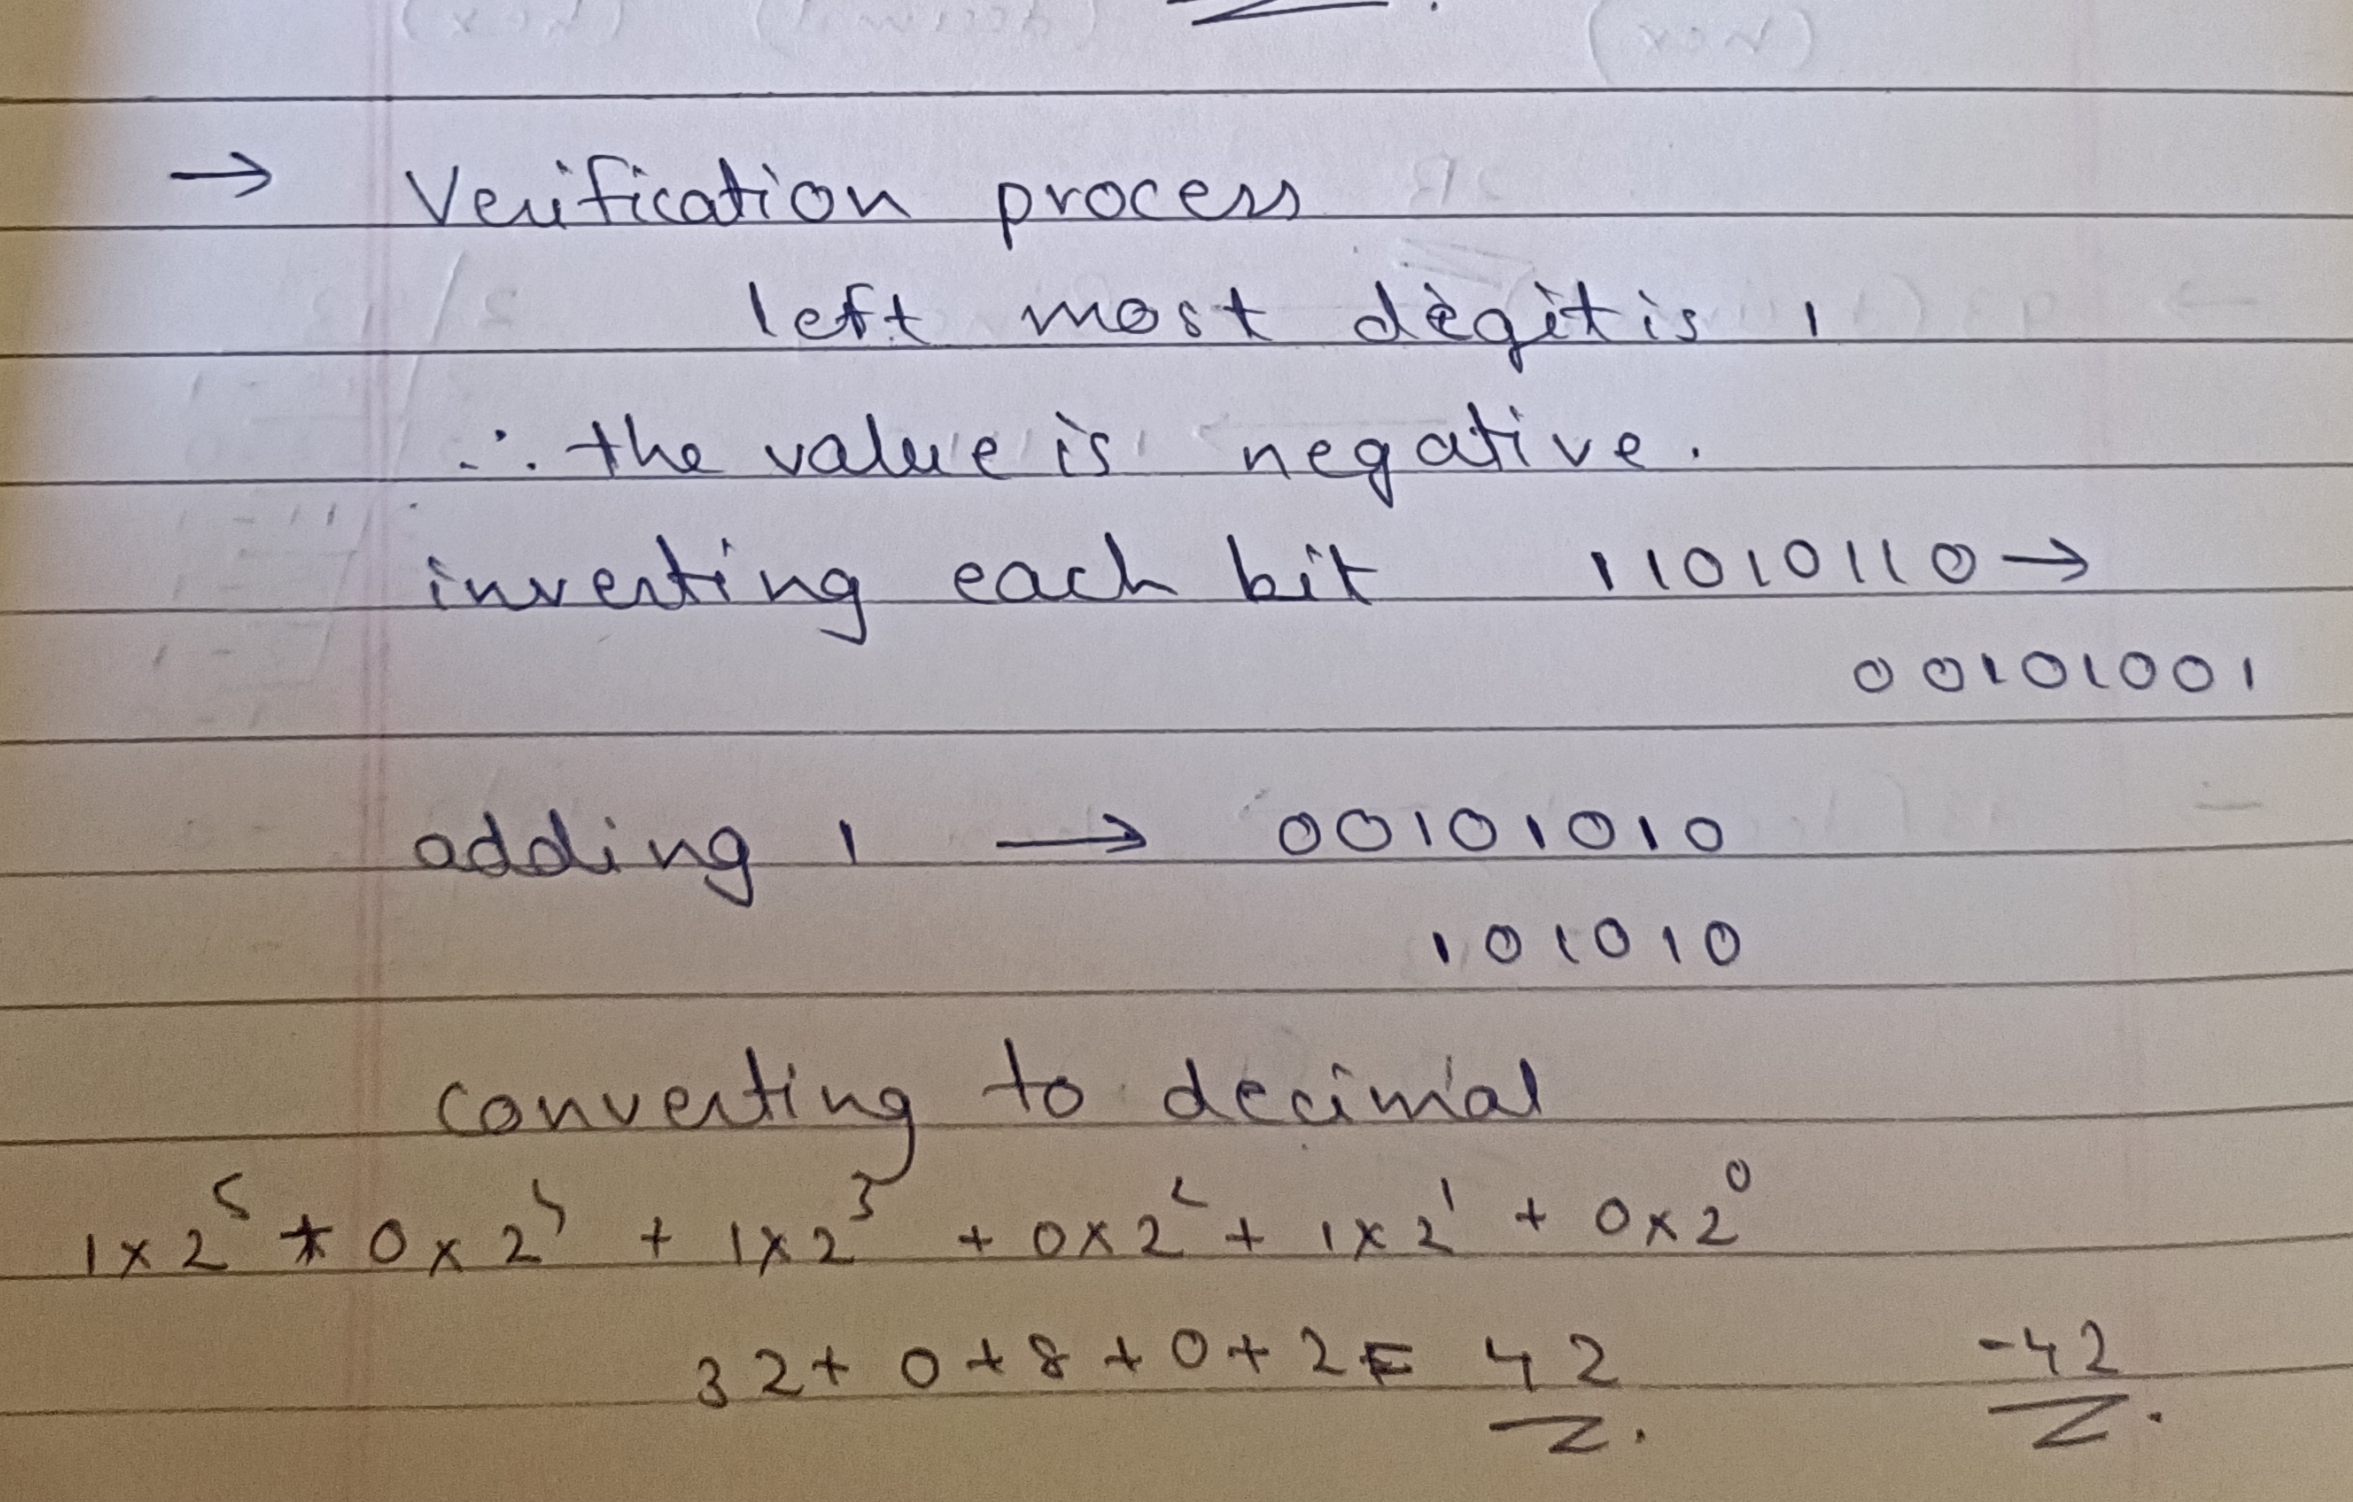 → Verification process
left most digit is 1
∴ the value is negative.
inverting each bit 11010110 →
00101001
adding 1 → 00101010
101010
converting to decimal
1×2⁵ + 0×2⁴ + 1×2³ + 0×2² + 1×2¹ + 0×2⁰
32+ 0+8+0+2= 42 -42